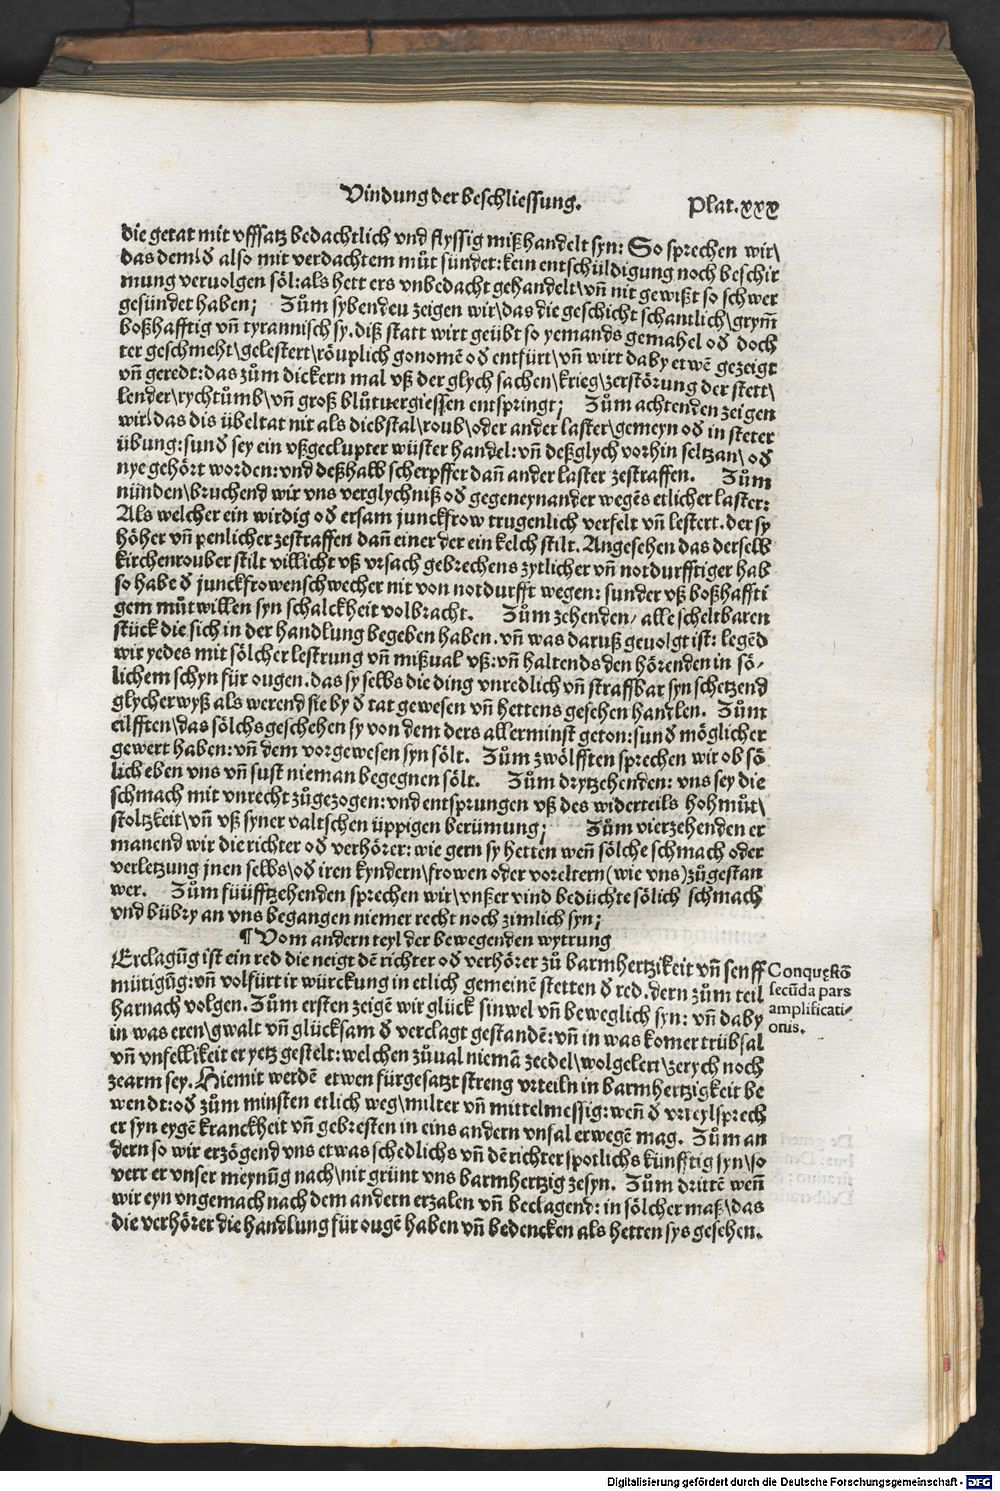 Vindung der beschliessung.
Plat.xxx
die getat mit vffsatz bedachtlich vnd flyssig mißhandelt syn: So sprechen wir\
das dem\ď also mit verdachtem můt sündet: kein entschüldigung noch beschir
mung vervolgen söl: als hett ers vnbedacht gehandelt\vñ nit gewißt so schwer
gesündet haben; Zům sybenden zeigen wir\das die geschicht schantlich\grym̃
boßhafftig vñ tyrannisch sy. diß statt wirt geübt so yemands gemahel oď doch
ter geschmeht\gelestert\röuplich gonomẽ oď entfürt\vñ wirt daby etwẽ gezeigt
vñ geredt: das zům dickern mal vß der glych sachen\krieg\zerstörung der stett\
lender\rychtůmb\vñ groß blůtuergiessen entspringt; Zům achtenden zeigen
wir\das dis übeltat nit als diebstal\roub\oder ander laster\gemeyn oď in steter
übung: sunď sey ein vßgeclupter wüster handel: vñ deßglych vorhin seltzan\oď
nye gehört worden: vnd deßhalb scherpffer dañ ander laster zestraffen. Zům
nünden\bruchend wir vns verglychniß oď gegeneynander wegẽs etlicher laster:
Als welcher ein wirdig oď ersam junckfrow trugenlich verfelt vñ lestert. der sy
höher vñ penlicher zestraffen dañ einer der ein kelch stilt. Angesehen das derselb
kirchenrouber stilt villicht vß vrsach gebrechens zytlicher vñ notdurfftiger hab
so habe ď junckfrowenschwecher nit von notdurfft wegen: sunder vß boßhaffti
gem můtwillen syn schalckheit volbracht. Zům zehenden/ alle scheltbaren
stück die sich in der handlung begeben haben. vñ was daruß geuolgt ist: legẽd
wir yedes mit sölcher lestrung vñ mißual vß: vñ haltends den hörenden in sö-
lichem schyn für ougen. das sy selbs die ding vnredlich vñ straffbar syn schetzend
glycherwyß als werend sie by ď tat gewesen vñ hettens gesehen handlen. Zům
eilfften\das sölchs geschehen sy von dem ders allerminst geton: sunď möglicher
gewert haben: vñ dem vorgewesen syn sölt. Zům zwölfften sprechen wir ob sö
lich eben vns vñ sust nieman begegnen sölt. Zům drytzehenden: vns sey die
schmach mit vnrecht zůgezogen: vnd entsprungen vß des widerteils hohmůt\
stoltzkeit\vñ vß syner valtschen üppigen berümung; Zům vierzehenden er
manend wir die richter oď verhörer: wie gern sy hetten weñ sölche schmach oder
verletzung jnen selbs\oď iren kyndern\frowen oder voreltern (wie vns) zůgestan
wer. Zům füüfftzehenden sprechen wir\vnßer vind bedüchte sölich schmach
vnd bübry an vns begangen niemer recht noch zimlich syn;
¶ Vom andern teyl der bewegenden wytrung
Erclagũg ist ein red die neigt dẽ richter oď verhörer zů barmhertzikeit vñ senff
mütigũg: vñ volfürt ir würckung in etlich gemeinẽ stetten ď red. dern zům teil
harnach volgen. Zům ersten zeigẽ wir glück sinwel vñ beweglich syn: vñ daby
in was eren\gwalt vñ glücksam ď verclagt gestandẽ: vñ in was komer trübsal
vñ vnsellikeit er yetz gestelt: welchen zůual niemã zeedel\wolgelert\zerych noch
zearm sey. Hiemit werdẽ etwen fürgesatzt streng vrteiln in barmhertzigkeit be
wendt: oď zům minsten etlich weg\milter vñ mittelmessig: weñ ď vrteylsprech
er syn eygẽ kranckheit vñ gebresten in eins andern vnfal erwegẽ mag. Zům an
dern so wir erzögend vns etwas schedlichs vñ dẽ richter spotlichs künfftig syn\so
verr er vnser meynũg nach\nit grünt vns barmhertzig zesyn. Zům drittẽ weñ
wir eyn vngemach nach dem andern erzalen vñ beclagend: in sölcher maß\das
die verhörer die handlung für ougẽ haben vñ bedencken als hetten sys gesehen.
Conquestõ
secũda pars
amplificati-
onis.
Digitalisierung gefördert durch die Deutsche Forschungsgemeinschaft - DFG